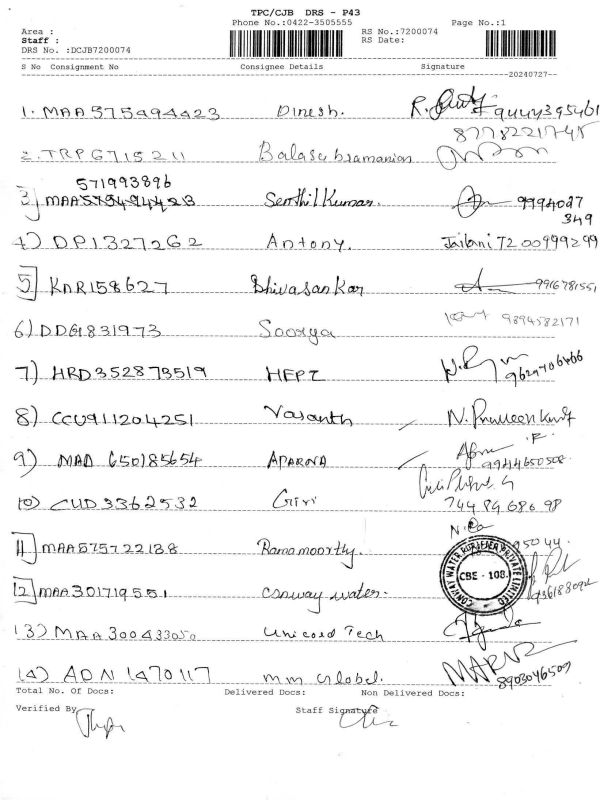 TPC/CJB DRS - P43
Phone No.:0422-3505555
Area :
Staff :
DRS No. :DCJB7200074
RS No.:7200074
RS Date:
Page No.:1
S No Consignment No Consignee Details Signature
20240727
1. MAA575494423 Dinesh. 9444395461
8778221745
2. TRP6715211 Balasubramanian
571993896
3] MAA575494423 Senthil Kumar. 9994027
349
4) DP1327262 Antony. Jailani 7200999299
5] KAR158627 Shivasankar 9916781551
6) DDG1831973 Soorya 9894582171
7) HRD352873519 HEPI
8) CCU9112041251 Vasanth N. Praveen Kumar
9) MAD 650185654 APARNA
9944650508
10) CUD3362532 Giri
744 89 686 98
11] MAA575722138 Ramamoorthy.
CONWAY WATER PURIFIER PRIVATE LIMITED
CBE - 108.
12] MAA301719551 conway water.
13) MAA300433050 unicord Tech
14) ADN 1470117 mm Global.
8903046509
Total No. Of Docs: Delivered Docs: Non Delivered Docs:
Verified By Staff Signature